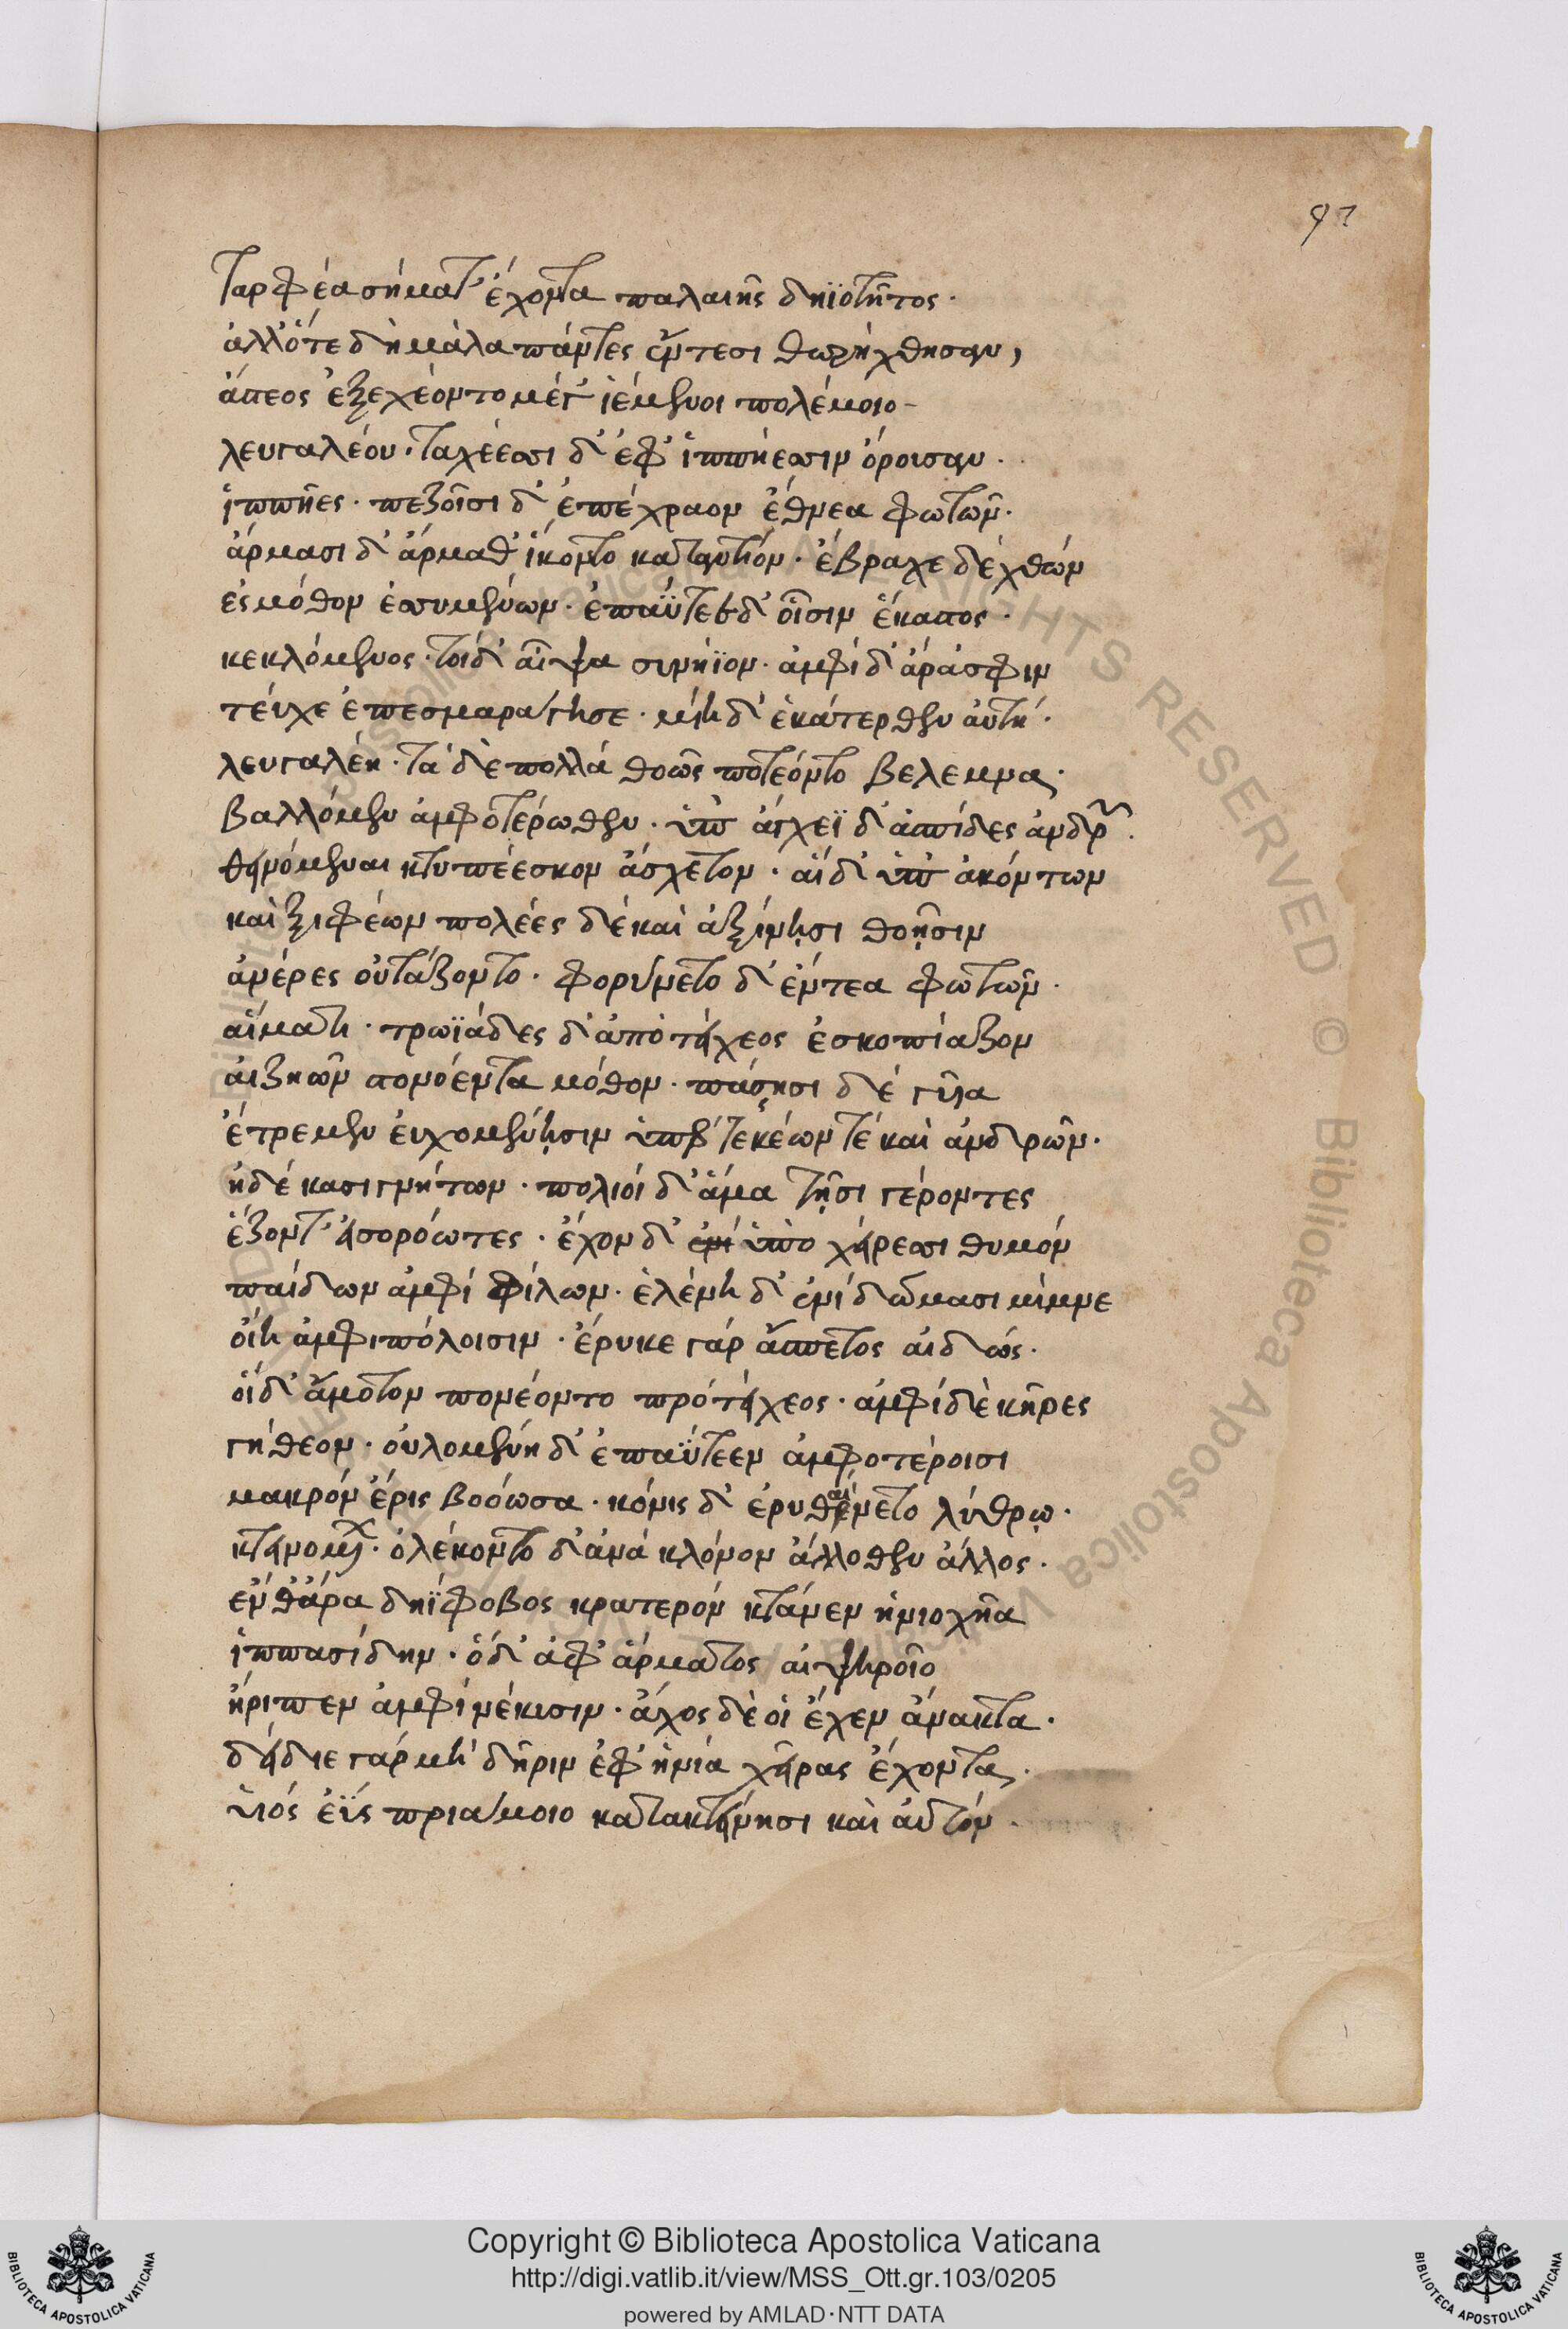 97
ταρφέα σήματ' ἔχοντα παλαιῆς δηϊοτῆτος·
ἀλλ' ὅτε δὴ μάλα πάντες ἔντεσι θωρήχθησαν,
ἄστεος ἐξεχέοντο μέγ' ἱέμενοι πολέμοιο
λευγαλέου· ταχέεσσι δ' ἐφ' ἱππήεσσιν ὄρουσαν·
ἱππῆες· πεζοῖσι δ' ἐπέχραον ἔθνεα φωτῶν·
ἅρμασι δ' ἅρμαθ' ἵκοντο καταντίον· ἔβραχε δὲ χθών
ἐς μόθον ἐσσυμένων· ἐπαΰτει δ' οἷσιν ἕκαστος·
κεκλόμενος· τοὶ δ' αἶψα συνήϊον· ἀμφὶ δ' ἄρά σφιν
τεύχε' ἐπεσμαράγησε· μίγη δ' ἑκάτερθεν ἀϋτή·
λευγαλέη· τὰ δὲ πολλὰ θοῶς ποτέοντο βέλεμνα·
βαλλόμεν' ἀμφοτέρωθεν· ὑπ' ἄγχεϊ δ' ἀσπίδες ἀνδρῶν·
θεινόμεναι κτυπέεσκον ἄσχετον· αἱ δ' ὑπ' ἀκόντων
καὶ ξιφέων πολέες δὲ καὶ ἀξίνῃσι θοῇσιν
ἀνέρες οὐτάζοντο· φορύνετο δ' ἔντεα φωτῶν·
αἵματι· τρωϊάδες δ' ἀπὸ τείχεος ἐσκοπίαζον
αἰζηῶν στονόεντα μόθον· πάσῃσι δὲ γυῖα
ἔτρεμεν εὐχομένῃσιν ὑπὲρ τεκέων τε καὶ ἀνδρῶν·
ἠδὲ κασιγνήτων· πολιοὶ δ' ἅμα τῇσι γέροντες
ἕζοντ' εἰσορόωτες· ἔχον δ' ἐνὶ ὑπὸ χείρεσσι θυμόν
παίδων ἀμφὶ φίλων· ἑλένη δ' ἐνὶ δώμασι μίμνε
οἴη ἀμφιπόλοισιν· ἔρυκε γὰρ ἄσπετος αἰδώς·
οἱ δ' ἄμοτον πονέοντο πρὸ τείχεος· ἀμφὶ δὲ κῆρες
γήθεον· οὐλομένη δ' ἐπαΰτεεν ἀμφοτέροισι
μακρὸν ἔρις βοόωσα· κόνις δ' ἐρυθαίνετο λύθρῳ·
κτεινομένων· ὀλέκοντο δ' ἀνὰ κλόνον ἄλλοθεν ἄλλος·
ἔνθ' ἄρα δηΐφοβος κρατερὸν κτάνεν ἡνιοχῆα
ἱππασίδην· ὁ δ' ἀφ' ἅρματος αἰψηροῖο
ἤριπεν ἀμφὶ νέκυσιν· ἄχος δέ οἱ ἔχεν ἄνακτα·
δείδιε γὰρ μὴ δῆριν ἐφ' ἡνία χεῖρας ἔχοντα·
υἱὸς ἐῢς πριάμοιο κατακτείνῃσι καὶ αὐτόν·
Copyright © Biblioteca Apostolica Vaticana
http://digi.vatlib.it/view/MSS_Ott.gr.103/0205
powered by AMLAD·NTT DATA